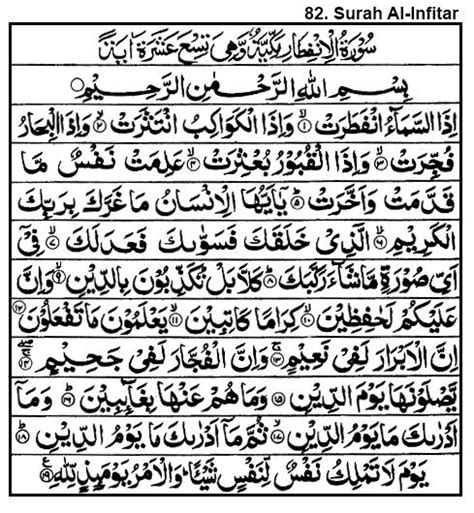 82. Surah Al-Infitar
سُوْرَةُ الْاِنْفِطَارِ مَكِّيَّةٌ وَّهِيَ تِسْعَ عَشَرَةَ اٰيَةً
بِسْمِ اللّٰهِ الرَّحْمٰنِ الرَّحِيْمِ
اِذَا السَّمَآءُ انْفَطَرَتْ ۙ﴿۱﴾ وَاِذَا الْكَوَاكِبُ انْتَثَرَتْ ۙ﴿۲﴾ وَاِذَا الْبِحَارُ
فُجِّرَتْ ۙ﴿۳﴾ وَاِذَا الْقُبُوْرُ بُعْثِرَتْ ۙ﴿۴﴾ عَلِمَتْ نَفْسٌ مَّا
قَدَّمَتْ وَاَخَّرَتْ ؕ﴿۵﴾ يٰۤاَيُّهَا الْاِنْسَانُ مَا غَرَّكَ بِرَبِّكَ
الْكَرِيْمِ ۙ﴿۶﴾ الَّذِيْ خَلَقَكَ فَسَوّٰىكَ فَعَدَلَكَ ۙ﴿۷﴾ فِيْۤ
اَيِّ صُوْرَةٍ مَّا شَآءَ رَكَّبَكَ ؕ﴿۸﴾ كَلَّا بَلْ تُكَذِّبُوْنَ بِالدِّيْنِ ۙ﴿۹﴾ وَاِنَّ
عَلَيْكُمْ لَحٰفِظِيْنَ ۙ﴿۱۰﴾ كِرَامًا كَاتِبِيْنَ ۙ﴿۱۱﴾ يَعْلَمُوْنَ مَا تَفْعَلُوْنَ ﴿۱۲﴾
اِنَّ الْاَبْرَارَ لَفِيْ نَعِيْمٍ ۚ﴿۱۳﴾ وَاِنَّ الْفُجَّارَ لَفِيْ جَحِيْمٍ ﴿۱۴﴾
يَّصْلَوْنَهَا يَوْمَ الدِّيْنِ ﴿۱۵﴾ وَمَا هُمْ عَنْهَا بِغَآئِبِيْنَ ؕ﴿۱۶﴾ وَمَاۤ
اَدْرٰىكَ مَا يَوْمُ الدِّيْنِ ۙ﴿۱۷﴾ ثُمَّ مَاۤ اَدْرٰىكَ مَا يَوْمُ الدِّيْنِ ؕ﴿۱۸﴾
يَوْمَ لَا تَمْلِكُ نَفْسٌ لِّنَفْسٍ شَيْئًا ؕ وَالْاَمْرُ يَوْمَئِذٍ لِّلّٰهِ ﴿۱۹﴾